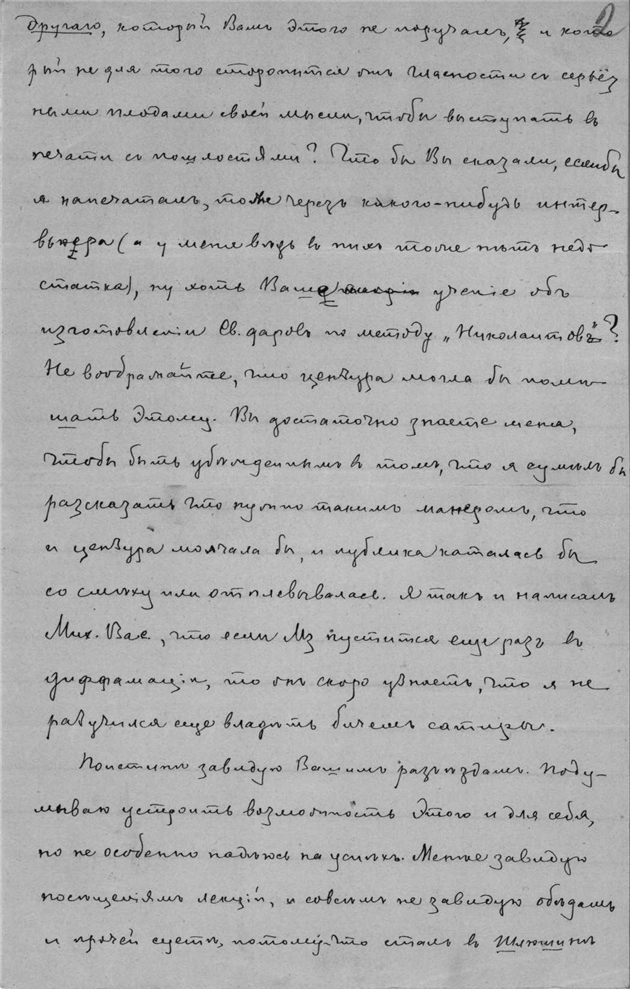 2
другаго, который Вамъ этого не поручалъ, и кото
рый не для того сторонится отъ гласности съ серьёз
ными плодами своей мысли, чтобы выступать въ
печати съ пошлостями? Что бы Вы сказали, если бы
я напечаталъ, тоже черезъ какого-нибудь интер-
вьюера (а у меня вѣдь въ нихъ тоже нѣтъ недо
статка), ну хоть Ваше ученіе объ
изготовленіи Св. даровъ по методу „Николаитовъ"?
Не воображайте, что цензура могла бы помѣ
шать этому. Вы достаточно знаете меня,
чтобы быть убѣжденнымъ въ томъ, что я сумѣлъ бы
разсказать что нужно такимъ манеромъ, что
и цензура молчала бы, и публика каталась бы
со смѣху или отплевывалась. Я такъ и написалъ
Мих. Вас., что если Мз пустится еще разъ въ
диффамаціи, то онъ скоро узнаетъ, что я не
разучился еще владѣть бичемъ сатиры.
Поистинѣ завидую Вашимъ разъѣздамъ. Поду-
мываю устроить возможность этого и для себя,
но не особенно надѣюсь на успѣхъ. Менѣе завидую
посѣщеніямъ лекцій, и совсѣмъ не завидую обѣдамъ
и прочей суетѣ, потому-что сталъ въ